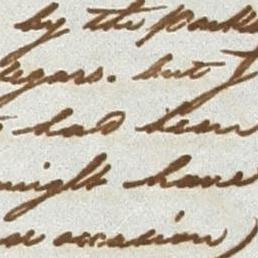 by the
but I
had been
might have
occasion)